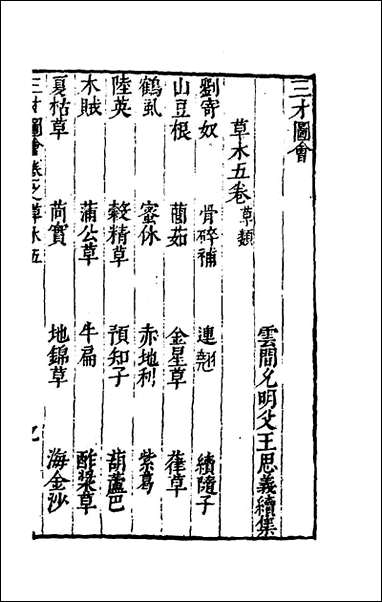 三才圖會
雲間允明父王思義續集
草木五卷 草類
劉寄奴 骨碎補 連翹 續隨子
山豆根 䕡茹 金星草 葎草
鶴虱 蚤休 赤地利 紫葛
陸英 穀精草 預知子 葫蘆巴
木賊 蒲公草 牛扁 酢漿草
夏枯草 茼實 地錦草 海金沙
三才圖會 草木五